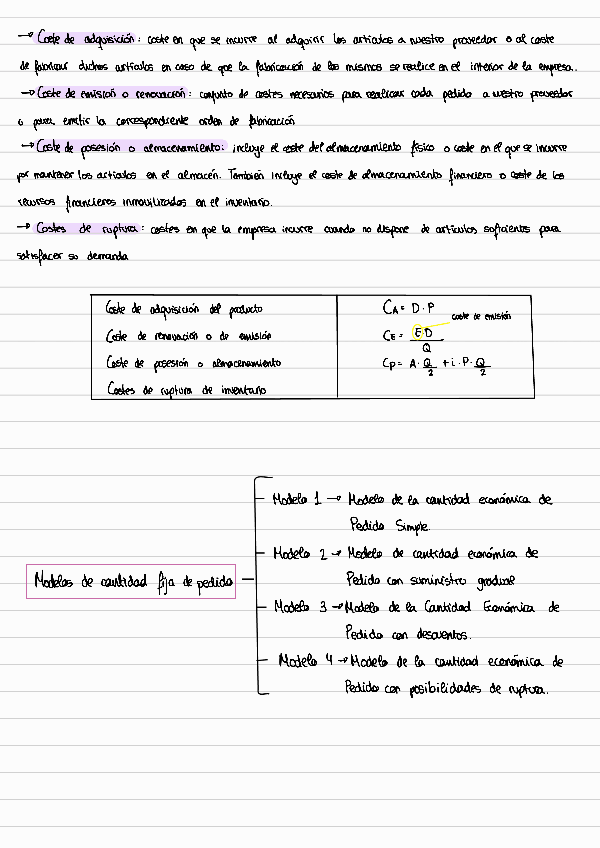 → Coste de adquisición: coste en que se incurre al adquirir los artículos a nuestro proveedor o al coste
de fabricar dichos artículos en caso de que la fabricación de los mismos se realice en el interior de la empresa.
→ Coste de emisión o renovación: conjunto de costes necesarios para realizar cada pedido a nuestro proveedor
o para emitir la correspondiente orden de fabricación
→ Coste de posesión o almacenamiento: incluye el coste del almacenamiento físico o coste en el que se incurre
por mantener los artículos en el almacén. También incluye el coste de almacenamiento financiero o coste de los
recursos financieros inmovilizados en el inventario.
→ Costes de ruptura: costes en que la empresa incurre cuando no dispone de artículos suficientes para
satisfacer su demanda
Coste de adquisición del producto CA = D · P
coste de emisión
Coste de renovación o de emisión CE = E·D / Q
Coste de posesión o almacenamiento CP = A · Q/2 + i · P · Q/2
Costes de ruptura de inventario
Modelos de cantidad fija de pedido
Modelo 1 → Modelo de la cantidad económica de
Pedido Simple.
Modelo 2 → Modelo de cantidad económica de
Pedido con suministro gradual
Modelo 3 → Modelo de la Cantidad Económica de
Pedido con descuentos.
Modelo 4 → Modelo de la cantidad económica de
Pedido con posibilidades de ruptura.